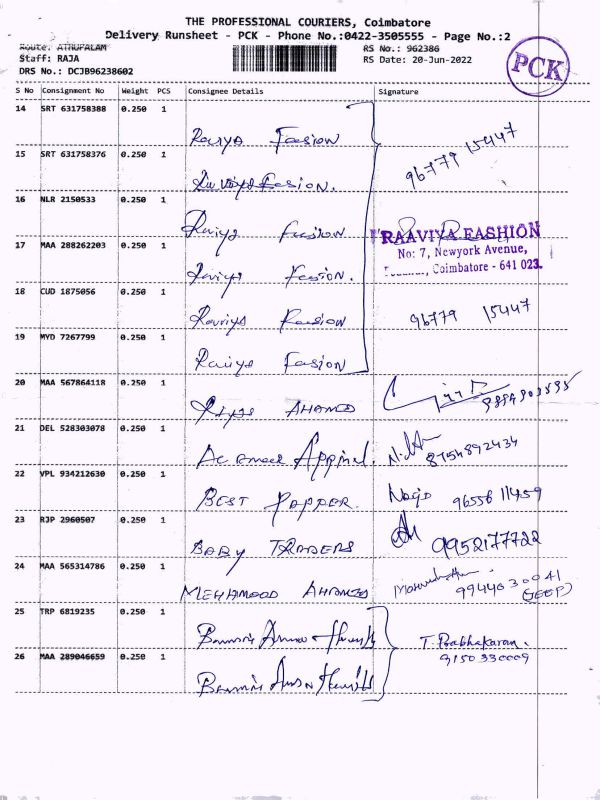 THE PROFESSIONAL COURIERS, Coimbatore
Delivery Runsheet - PCK - Phone No.:0422-3505555 - Page No.:2
Route: ATHUPALAM
RS No.: 962386
Staff: RAJA
RS Date: 20-Jun-2022
DRS No.: DCJB96238602
PCK
S No Consignment No Weight PCS Consignee Details Signature
14 SRT 631758388 0.250 1
Raviya Fasion
96779 15447
15 SRT 631758376 0.250 1
Fasion.
16 NLR 2150533 0.250 1
Raviya Fasion
RAAVIYA FASHION
17 MAA 288262203 0.250 1
No: 7, Newyork Avenue,
Coimbatore - 641 023.
Raviya Fasion.
18 CUD 1875056 0.250 1
Raviya Fasion
96779 15447
19 MYD 7267799 0.250 1
Raviya Fasion
20 MAA 567864118 0.250 1
AHAMED
21 DEL 528303078 0.250 1
8754892434
22 VPL 934212630 0.250 1
BEST POPPER
Naga 96556 11459
23 RJP 2960507 0.250 1
BABY TRADERS
9952177722
24 MAA 565314786 0.250 1
MEHAMOOD AHAMED
9944630041
25 TRP 6819235 0.250 1
T. Prabhakaran.
9150330009
26 MAA 289046659 0.250 1